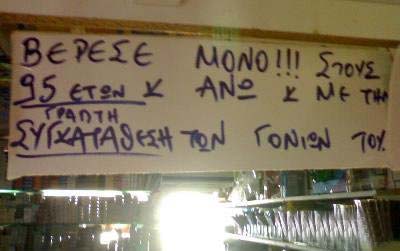 ΒΕΡΕΣΕ ΜΟΝΟ!!! ΣΤΟΥΣ
95 ΕΤΩΝ Κ ΑΝΩ Κ ΜΕ ΤΗΝ
ΓΡΑΠΤΗ
ΣΥΓΚΑΤΑΘΕΣΗ ΤΩΝ ΓΟΝΙΩΝ ΤΟΥ.